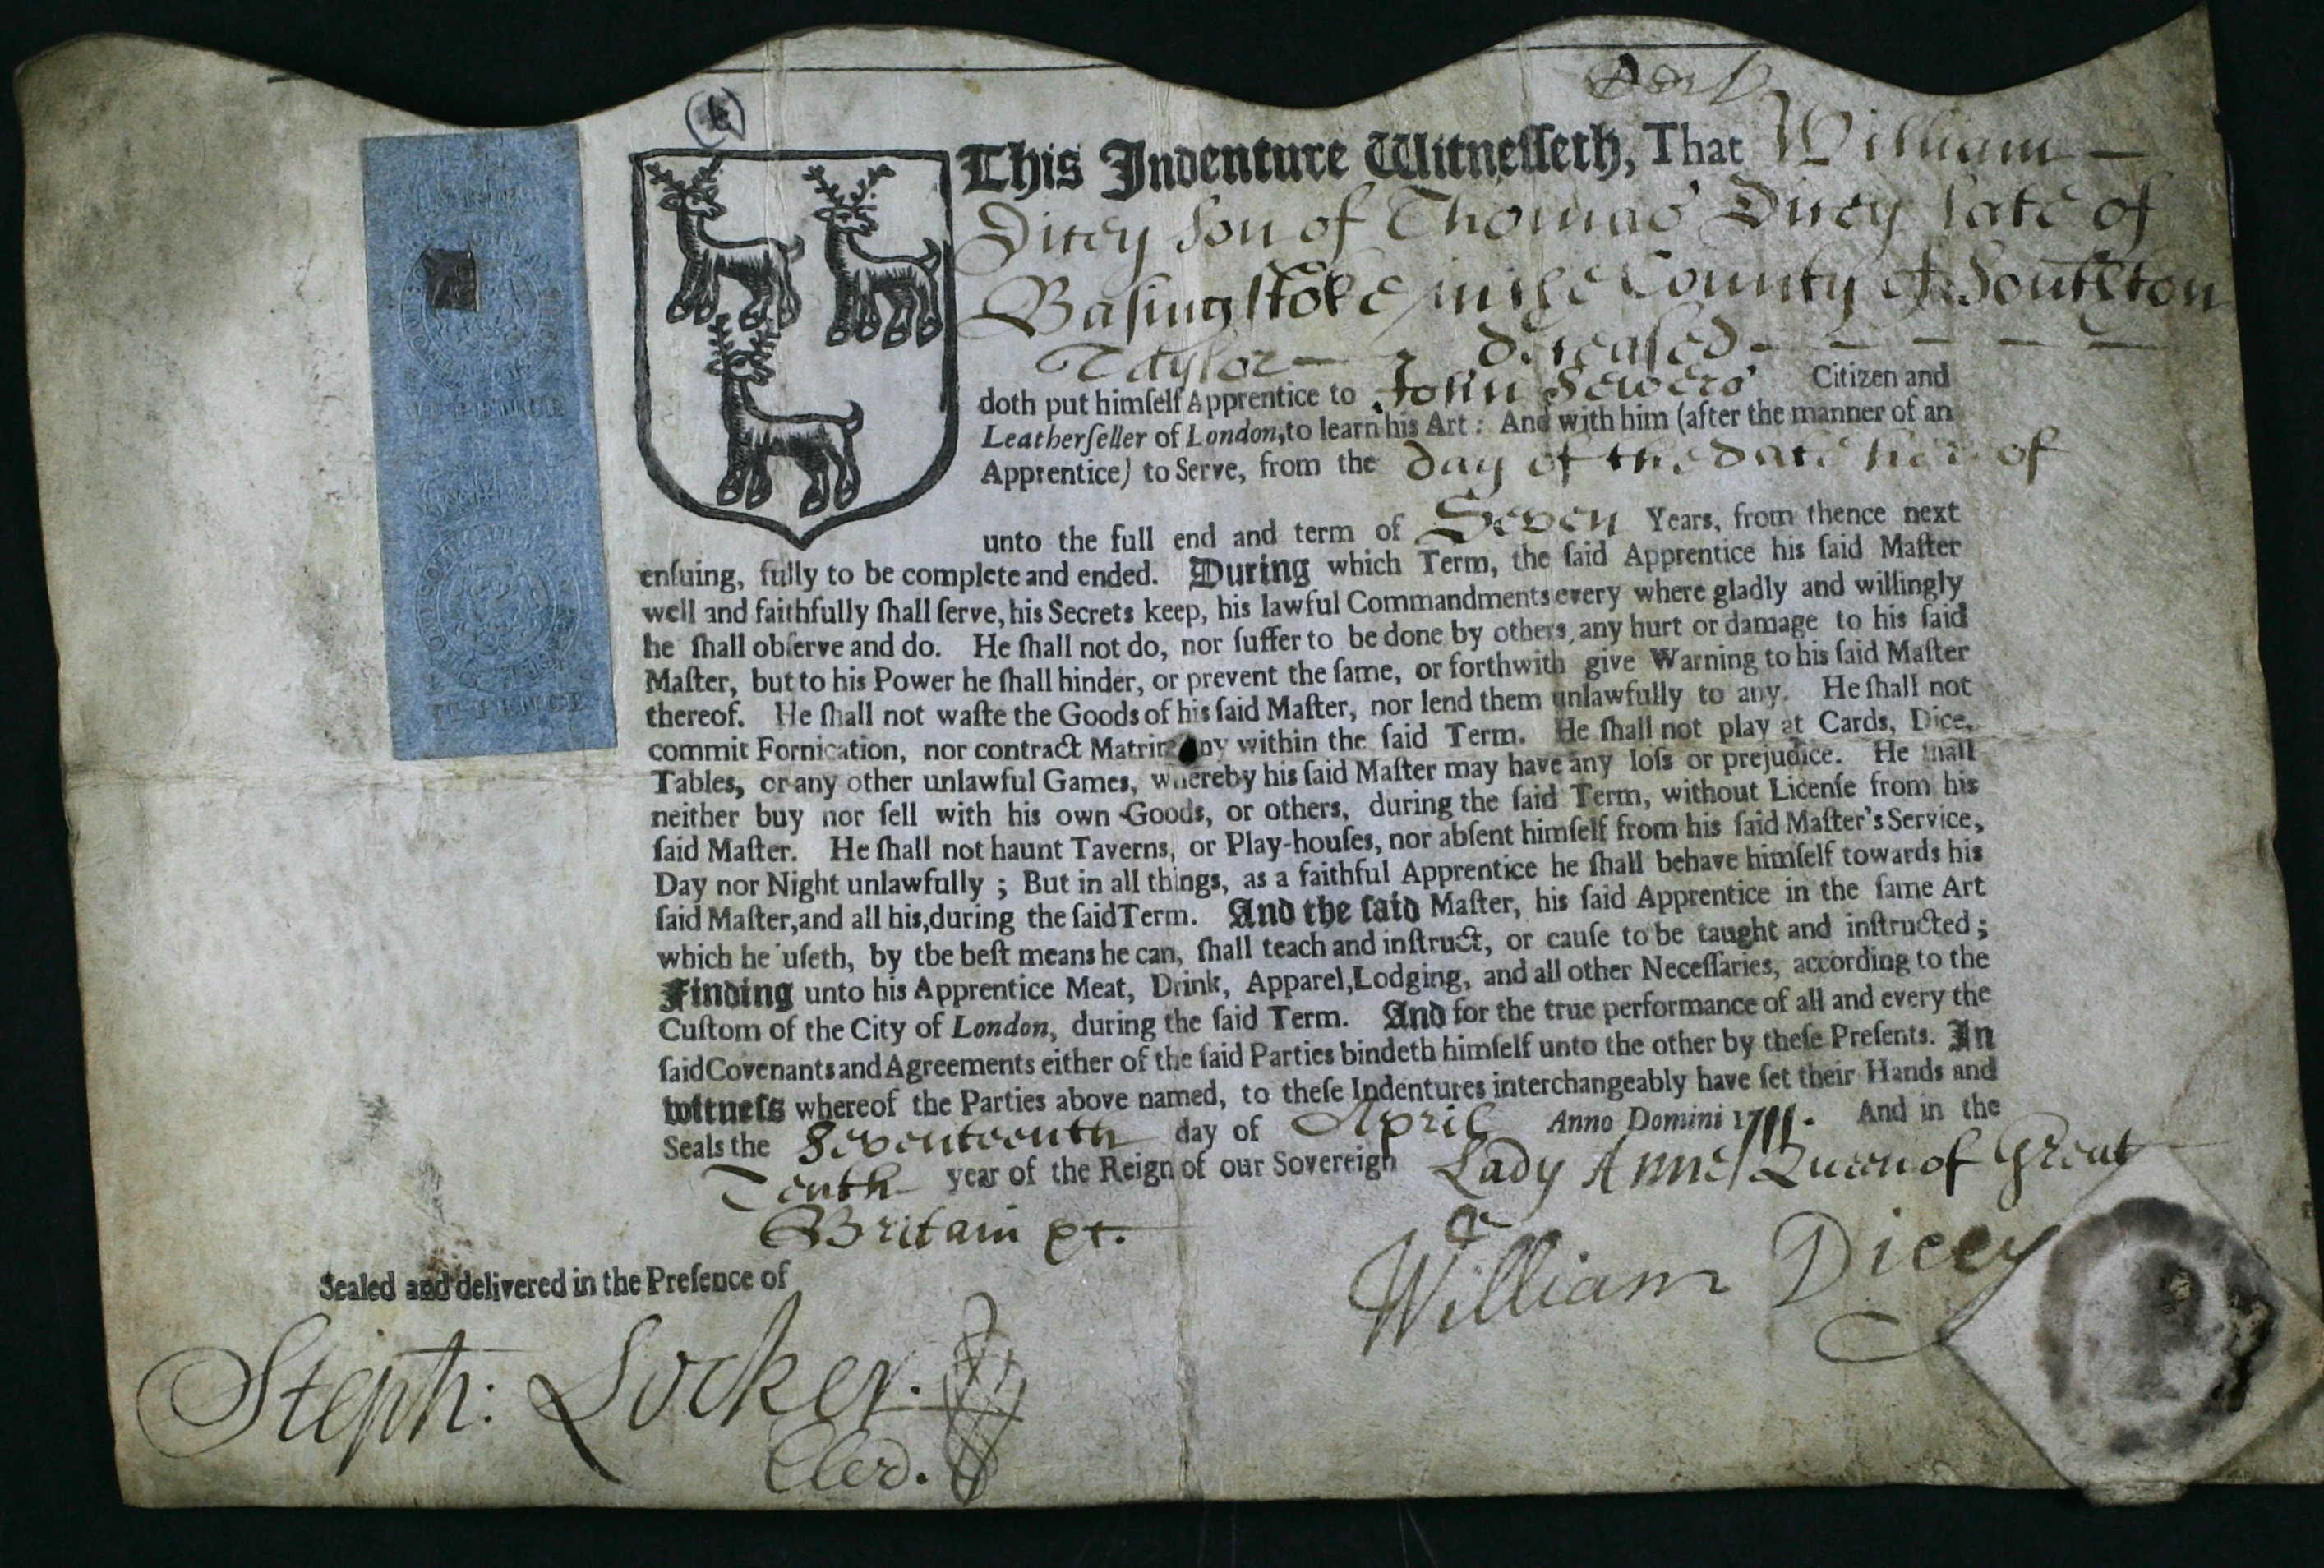 This Indenture Witneſſeth, That William
Dicey Son of Thomas Dicey late of
Baſingſtoke in the County of Southton
Taylor deceaſed
doth put himſelf Apprentice to John Sewers Citizen and
Leatherſeller of London, to learn his Art: And with him (after the manner of an
Apprentice) to Serve, from the day of the date hereof
unto the full end and term of Seven Years, from thence next
enſuing, fully to be complete and ended. During which Term, the ſaid Apprentice his ſaid Maſter
well and faithfully ſhall ſerve, his Secrets keep, his lawful Commandments every where gladly and willingly
he ſhall obſerve and do. He ſhall not do, nor ſuffer to be done by others, any hurt or damage to his ſaid
Maſter, but to his Power he ſhall hinder, or prevent the ſame, or forthwith give Warning to his ſaid Maſter
thereof. He ſhall not waſte the Goods of his ſaid Maſter, nor lend them unlawfully to any. He ſhall not
commit Fornication, nor contract Matrimony within the ſaid Term. He ſhall not play at Cards, Dice,
Tables, or any other unlawful Games, whereby his ſaid Maſter may have any loſs or prejudice. He ſhall
neither buy nor ſell with his own Goods, or others, during the ſaid Term, without Licenſe from his
ſaid Maſter. He ſhall not haunt Taverns, or Play-houſes, nor abſent himſelf from his ſaid Maſter's Service,
Day nor Night unlawfully; But in all things, as a faithful Apprentice he ſhall behave himſelf towards his
ſaid Maſter, and all his, during the ſaid Term. And the ſaid Maſter, his ſaid Apprentice in the ſame Art
which he uſeth, by the beſt means he can, ſhall teach and inſtruct, or cauſe to be taught and inſtructed;
Finding unto his Apprentice Meat, Drink, Apparel, Lodging, and all other Neceſſaries, according to the
Cuſtom of the City of London, during the ſaid Term. And for the true performance of all and every the
ſaid Covenants and Agreements either of the ſaid Parties bindeth himſelf unto the other by theſe Preſents. In
witneſs whereof the Parties above named, to theſe Indentures interchangeably have ſet their Hands and
Seals the Seventeenth day of April Anno Domini 1711. And in the
Tenth year of the Reign of our Sovereign Lady Anne Queen of Great
Britain &c.
William Dicey
Sealed and delivered in the Preſence of
Steph: Locker.
Cler.